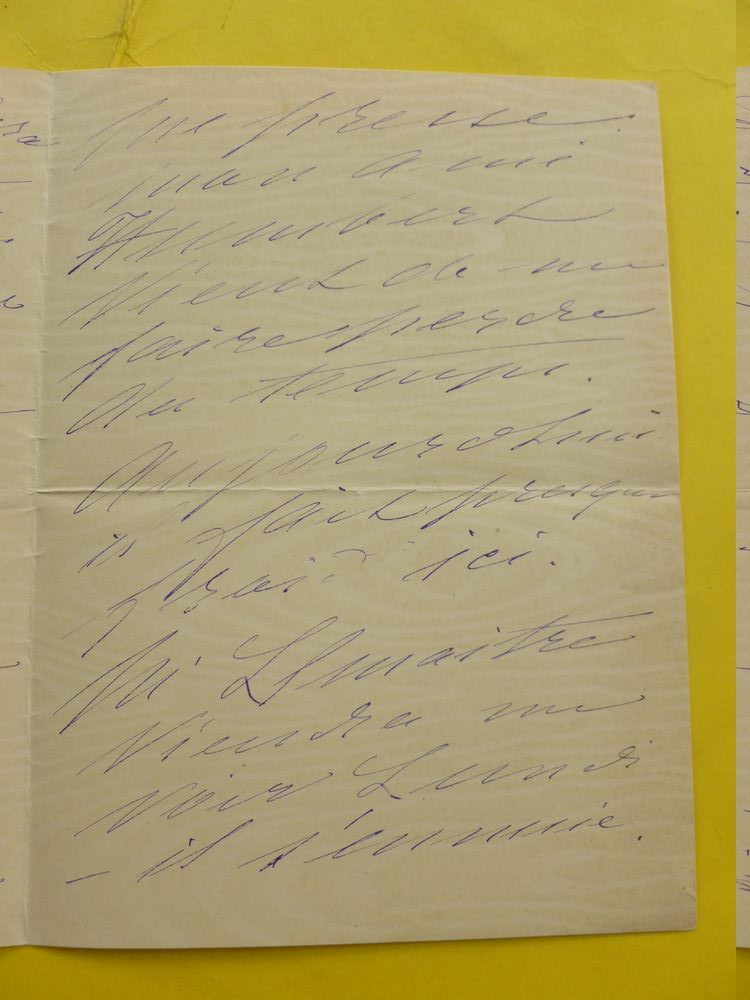 me presse.
mon ami
Humbert
vient de me
faire perdre
du temps.
Aujourdhui
il fait presque
froid ici.
Lemaitre
viendra me
voir Lundi
- il s'ennuie.